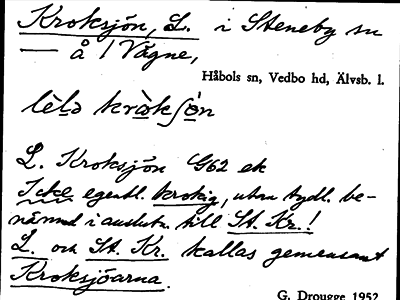 Kroksjön, L. i Steneby sn
— å 1 Vägne,
Håbols sn, Vedbo hd, Älvsb. l.
lèlə kròksjön
L. Kroksjön G62 ek
Icke egentl. krokig, utan tydl. be-
nämnd i anslutn. till St. Kr.!
L. och St. Kr. kallas gemensamt
Kroksjöarna.
G. Drougge 1952